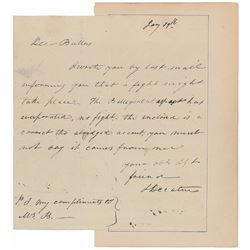 Jany 19th
Dr - Butler
I wrote you by last mail
informing you that a fight might
take place. The Belligerent aspect has
evaporated, no fight. the inclosed is a
correct tho abridged account, you must
not say it comes from me
your obt st
found
S Decatur
P.S my compliments to
Mrs B. —